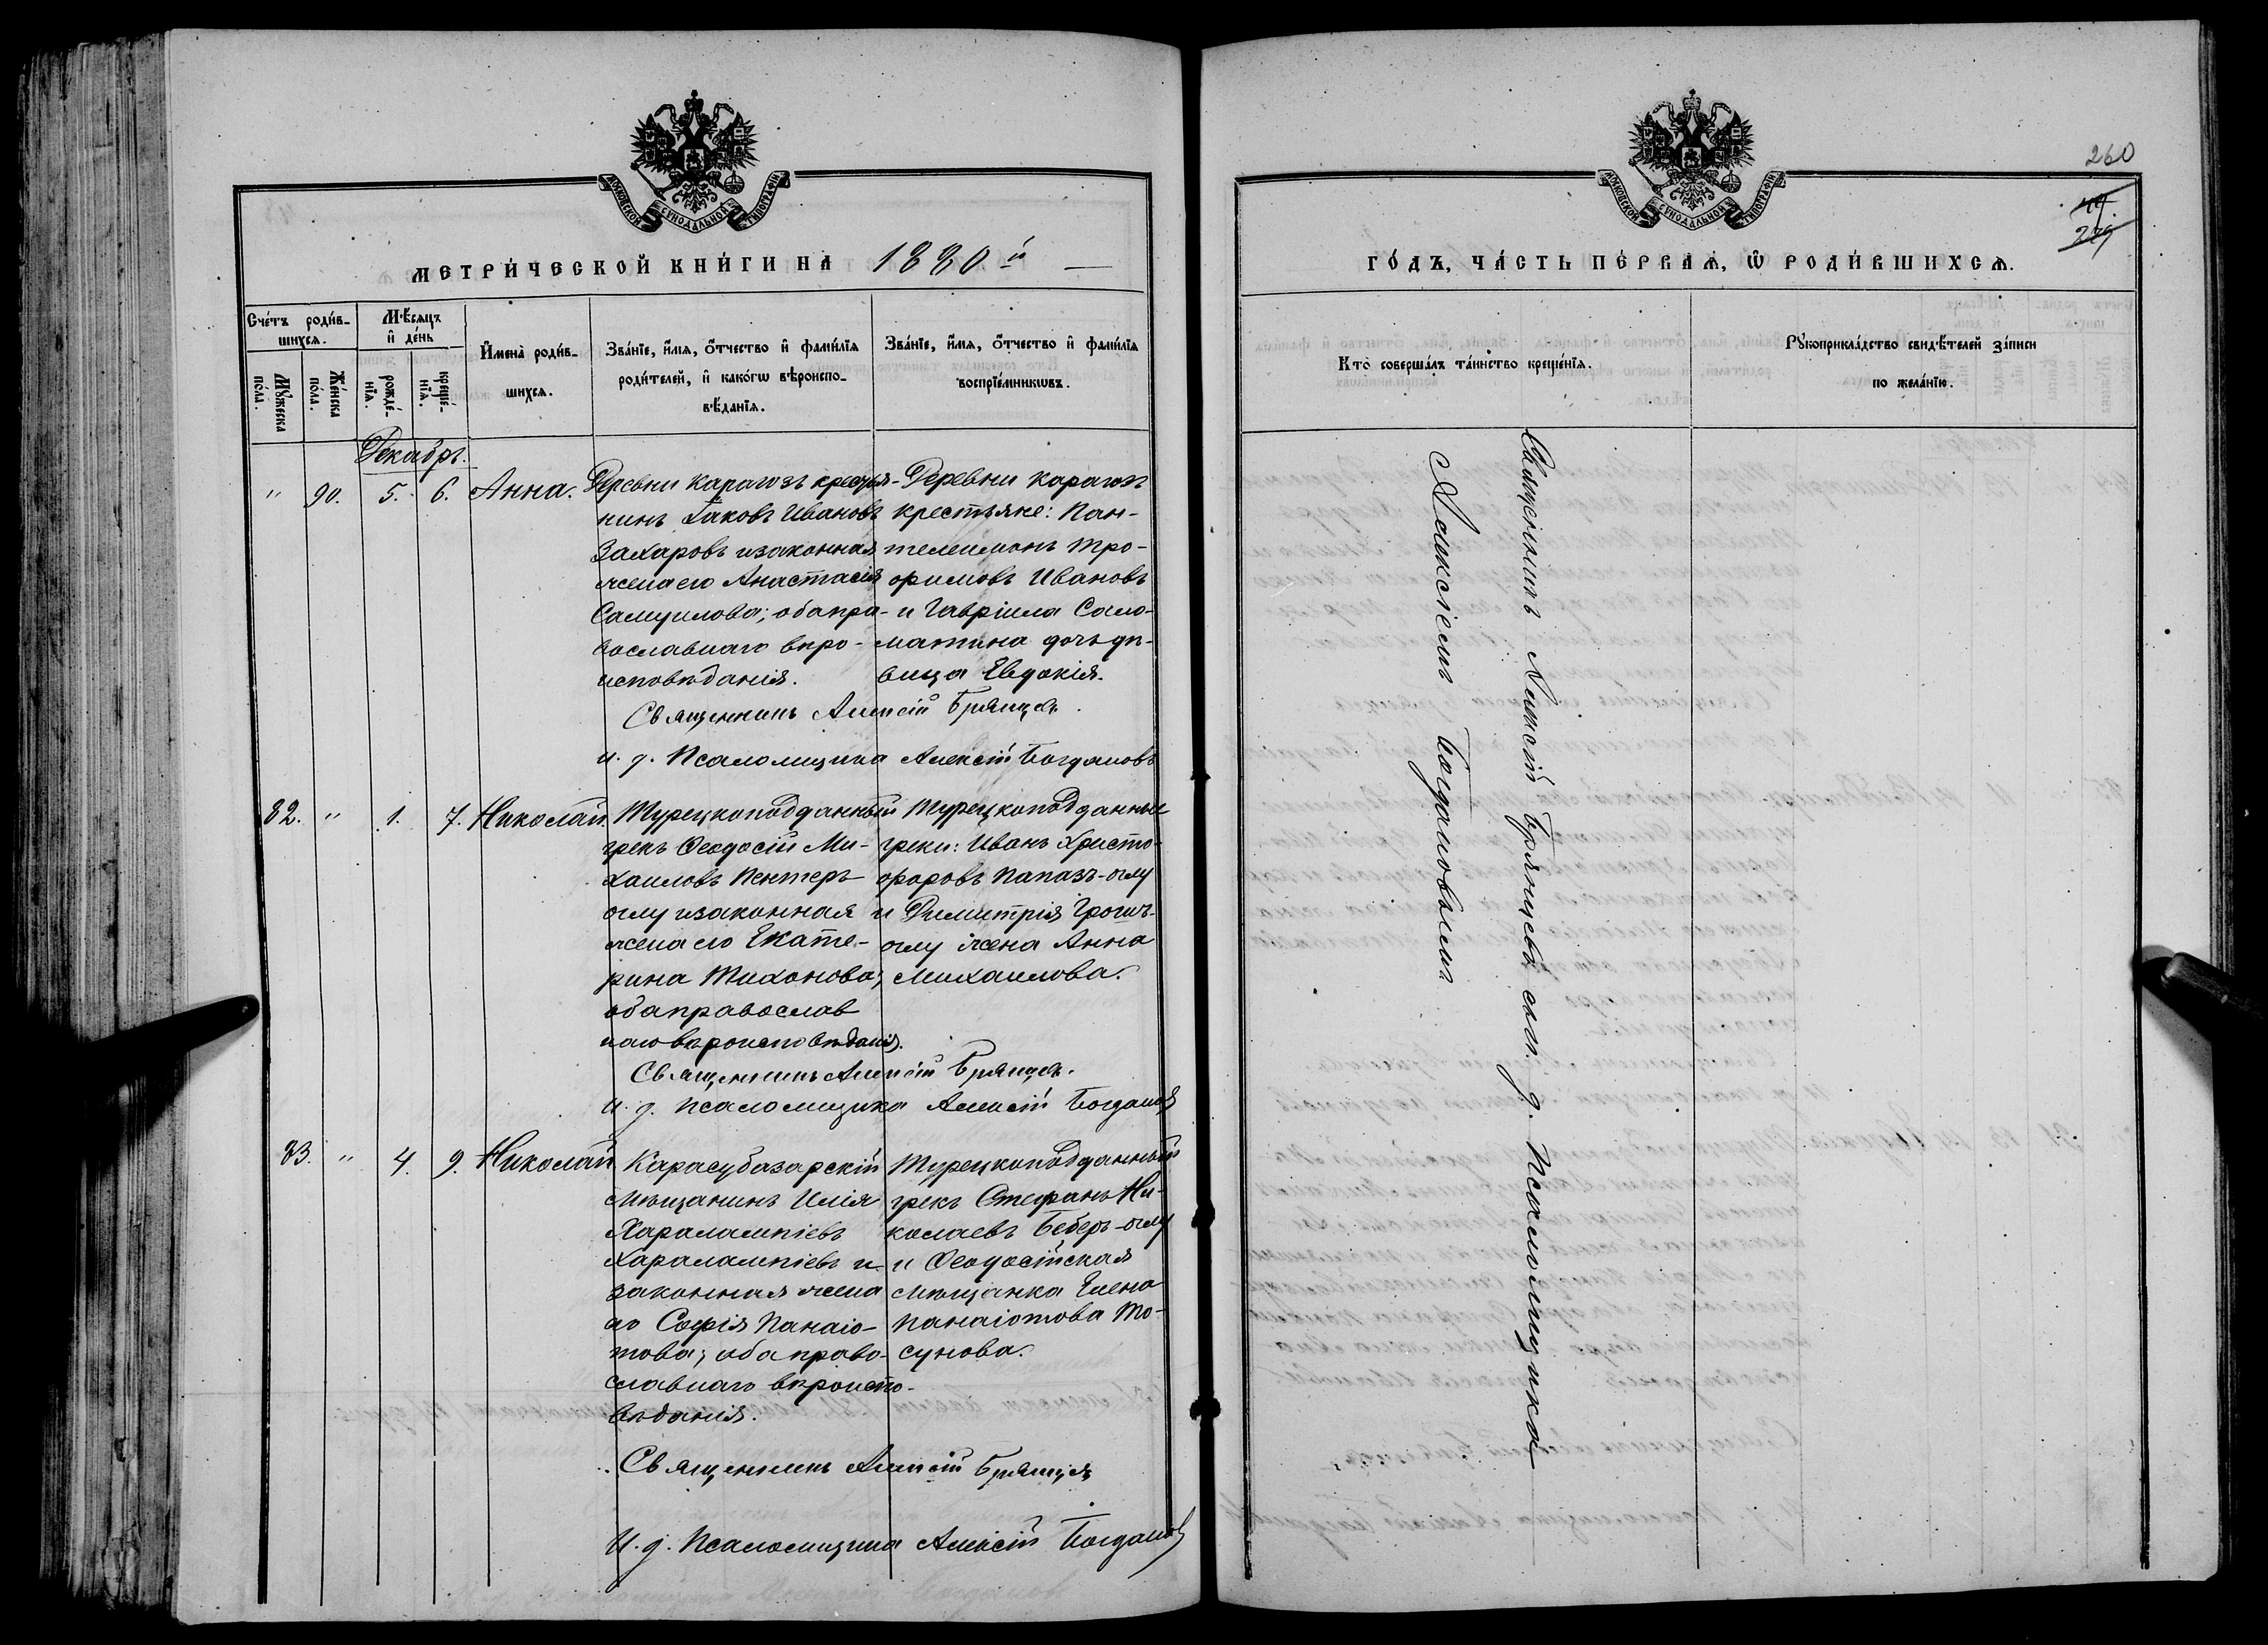 МОСКОВСКОЙ СУНОДАЛЬНОЙ ТИПОГРАФІИ
МЕТРИ́ЧЕСКОЙ КНИ́ГИ НА 1880й
Сче́тъ роди́в-
шихся.
Мꙋ́жеска
по́ла.
Же́нска
по́ла.
Мѣ́сяцъ
и҆ де́нь
рожде́-
нїя.
креще́-
нїя.
И҆мена̀ роди́в-
шихся.
Зва́нїе, и҆́мя, ѻ҆́тчество и҆ фами́лїя
роди́телей, и҆ како́гѡ вѣроиспо-
вѣ́данїя.
Зва́нїе, и҆́мя, ѻ҆́тчество и҆ фами́лїя
воспрїе́мникѡвъ.
Декабрь.
" 90. 5. 6. Анна.
Деревни Карагозъ крестья-
нинъ Іаковъ Ивановъ
Захаровъ и законная
жена его Анастасія
Самуилова; оба пра-
вославнаго вѣро-
исповѣданія.
Деревни Карагозъ
крестьяне: Пан-
телеимонъ Тро-
фимовъ Ивановъ
и Гавріила Сало-
матина дочь дѣ-
вица Евдокія.
Священникъ Алексій Брянцевъ.
И. д. Псаломщика Алексій Богдановъ
82. " 1. 7. Николай.
Турецкоподданный
грекъ Ѳеодосій Ми-
хаиловъ Пентеръ
оглу и законная
жена его Екате-
рина Тихонова;
оба православ
наго вѣроисповѣданія.
Турецкоподданные
греки: Иванъ Христо-
форовъ Папазъ-оглу
и Димитрія
оглу жена Анна
Михаилова.
Священникъ Алексій Брянцевъ.
И. д. Псаломщика Алексій Богдановъ
83. " 4. 9. Николай
Карасубазарскій
мѣщанинъ Илія
Харалампіевъ
Харалампіевъ и
законная жена
его Софія Панаіо-
това; оба право-
славнаго вѣроиспо-
вѣданія.
Турецкоподданный
грекъ Стефанъ Ни-
колаевъ Беберъ-оглу
и Ѳеодосійская
мѣщанка Елена
Панаіотова То-
сунова.
Священникъ Алексій Брянцевъ
И. д. Псаломщика Алексій Богдановъ
260
279
МОСКОВСКОЙ СУНОДАЛЬНОЙ ТИПОГРАФІИ
ГО́ДЪ, ЧА́СТЬ ПЕ́РВАЯ, Ѡ҆ РОДИ́ВШИХСЯ.
Кто̀ соверша́лъ та́инство креще́нїя.
Рꙋкоприкла́дство свидѣ́телей за́писи
по жела́нїю.
Священникъ Алексій Брянцевъ съ и. д. Псаломщика
Алексіемъ Богдановымъ